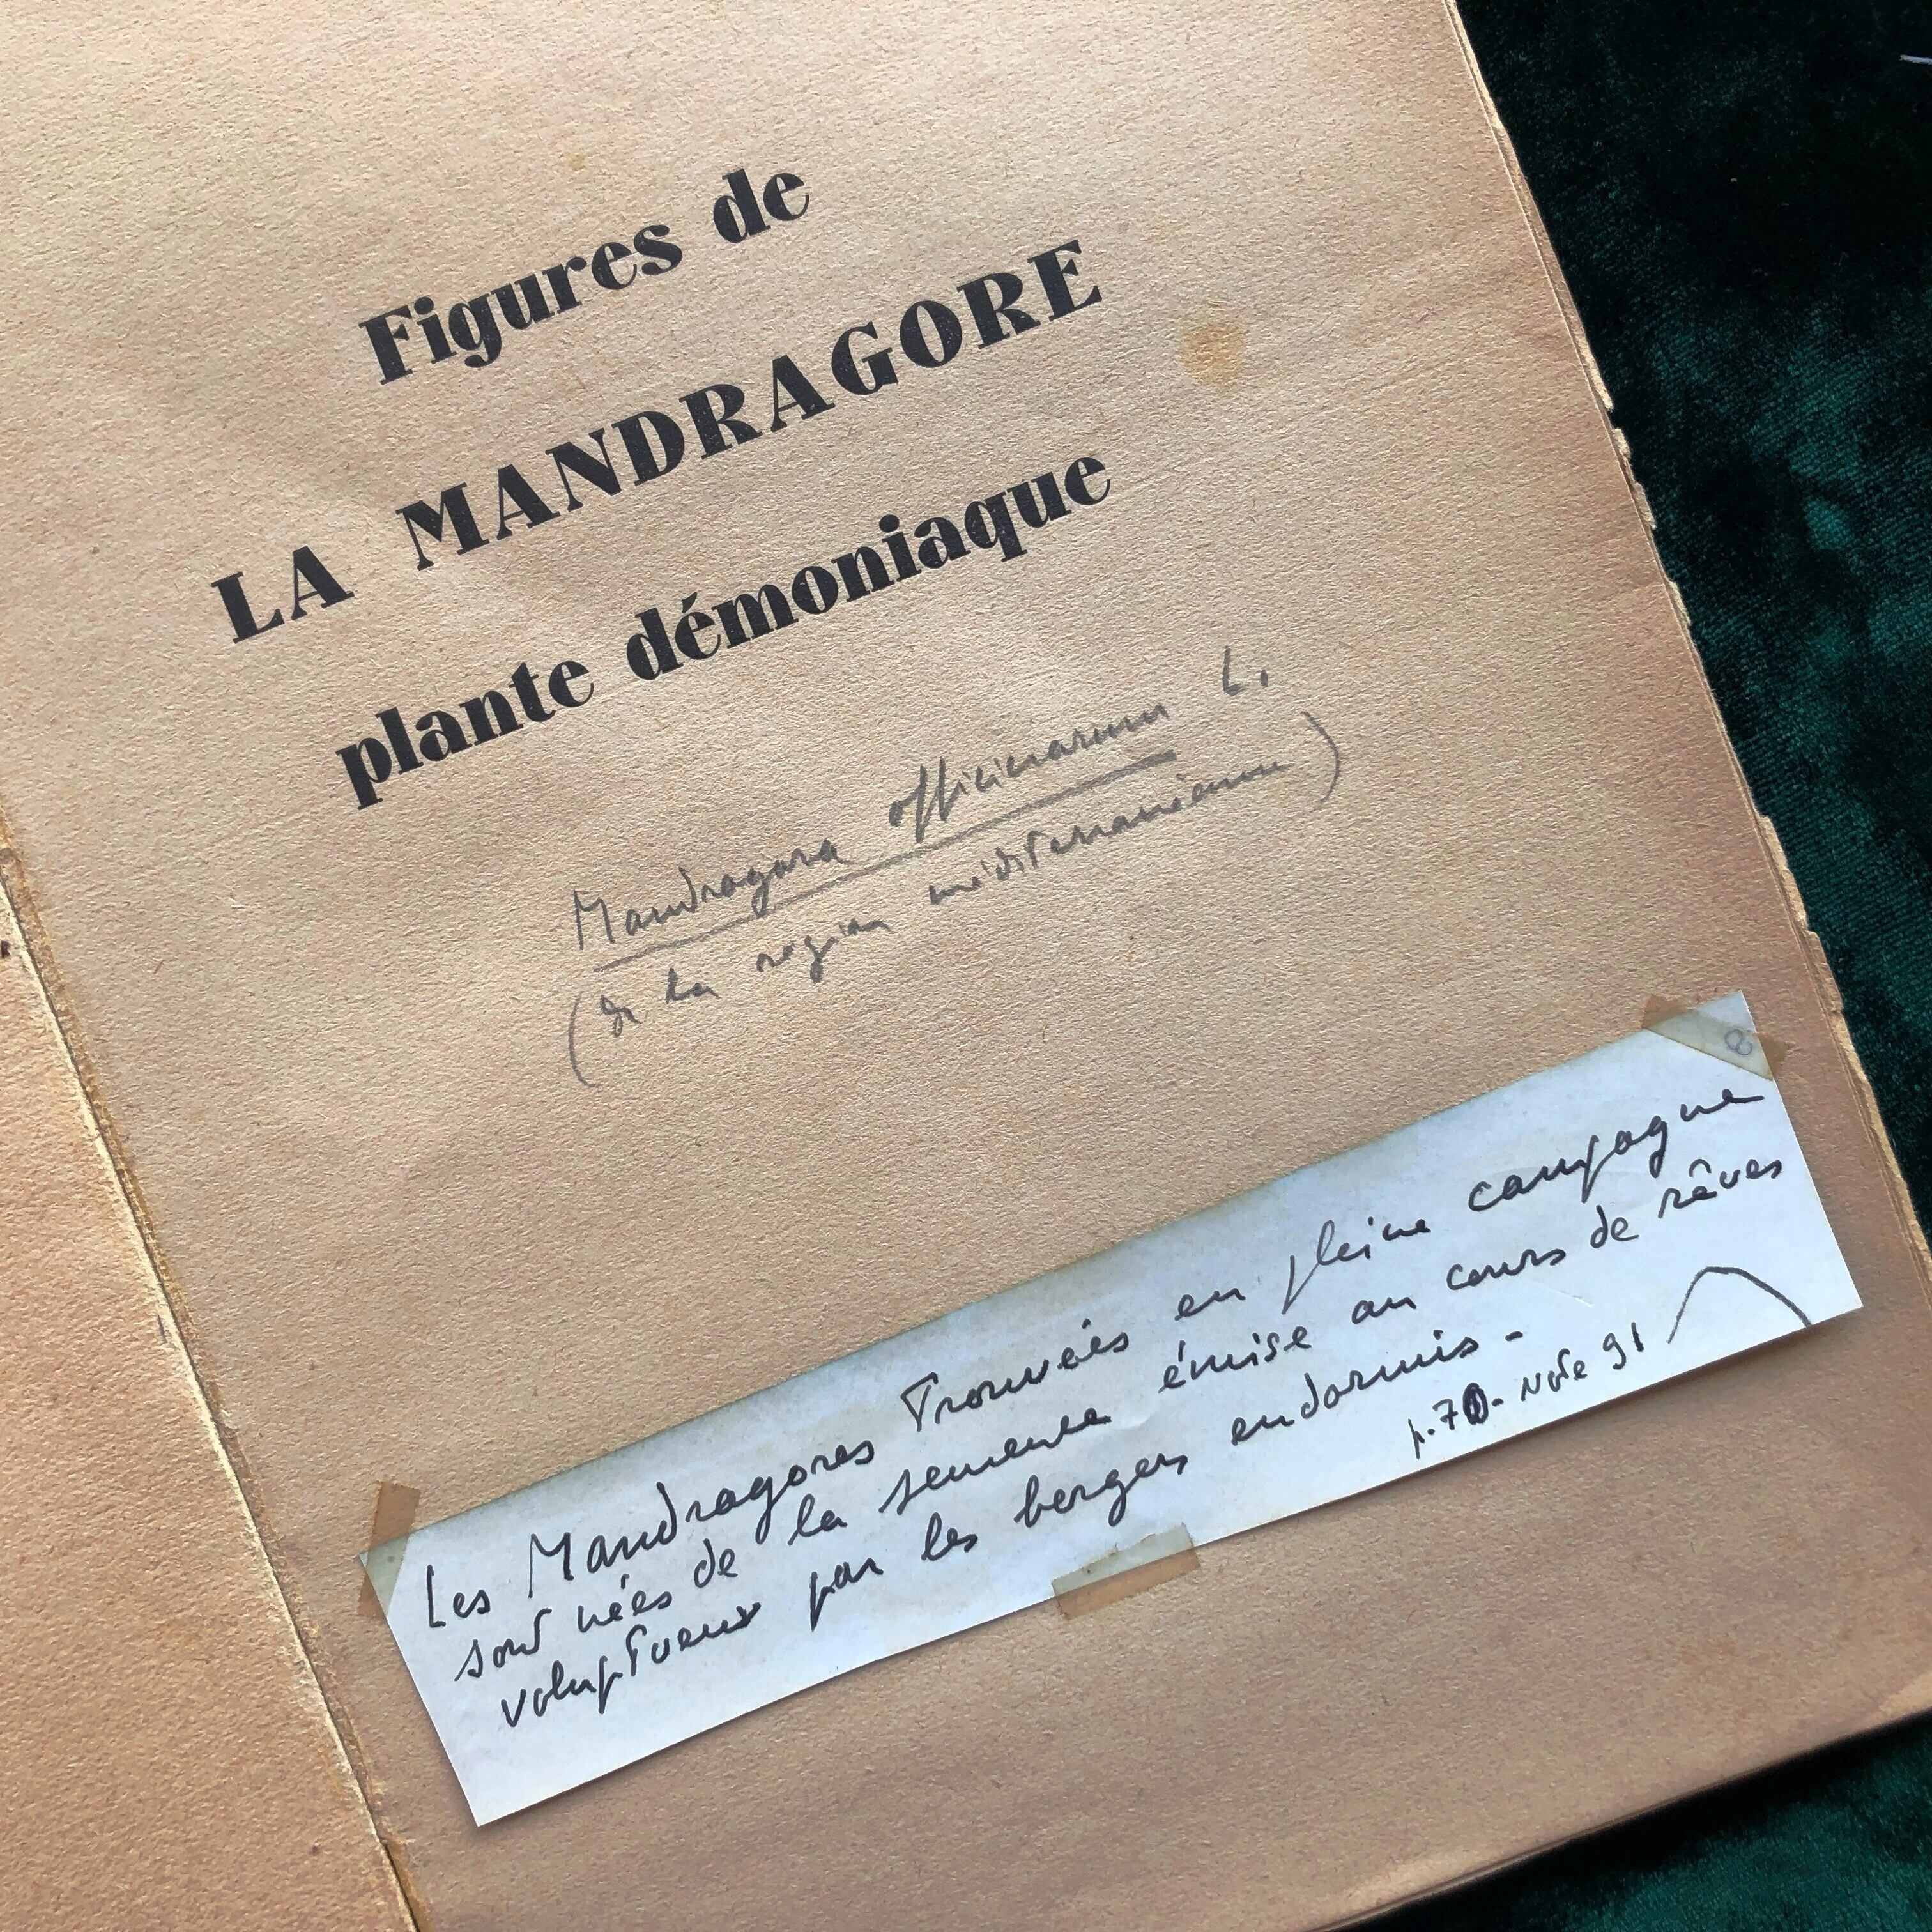 Figures de
LA MANDRAGORE
plante démoniaque
Mandragora officinarum L.
(de la région méditerranéenne)
e
Les Mandragores Trouvées en pleine campagne
sont nées de la semence émise au cours de rêves
voluptueux par les bergers endormis -
p.70- Note 91